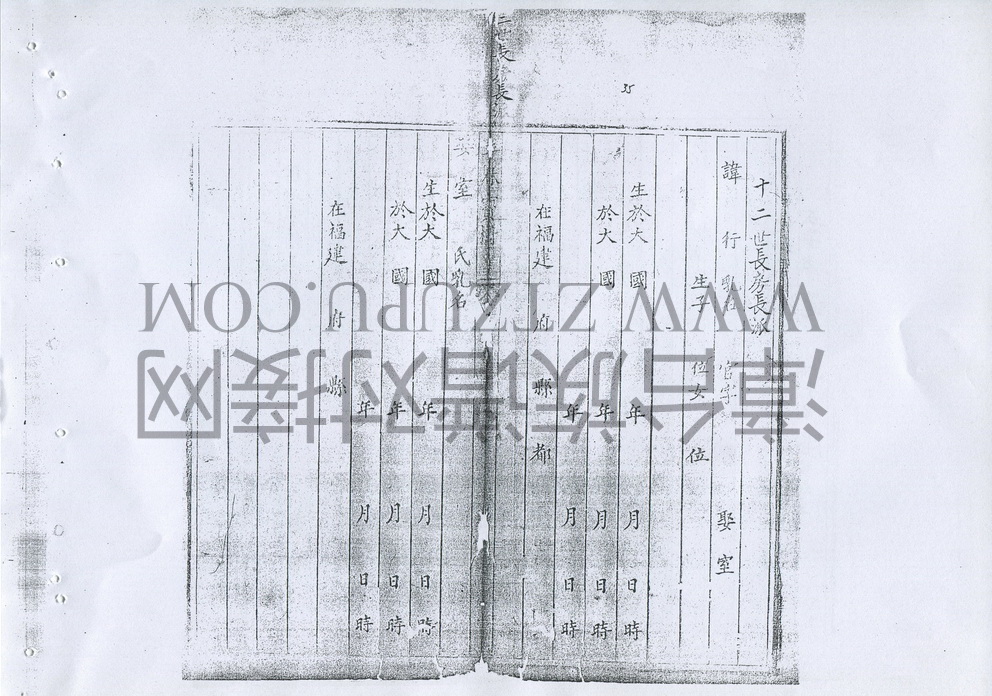 35
十二世長房長派
諱 行 官字 娶室
生子 位女 位
生於大 國 年 月 日 時
於大 國 年 月 日 時
年 月 日 時
在福建 府 縣 都
二世長 長
室 氏乳名
生於大 國 年 月 日 時
於大 國 年 月 日 時
年 月 日 時
在福建 府 縣
WWW.ZTZUPU.COM
漳台族谱对接网